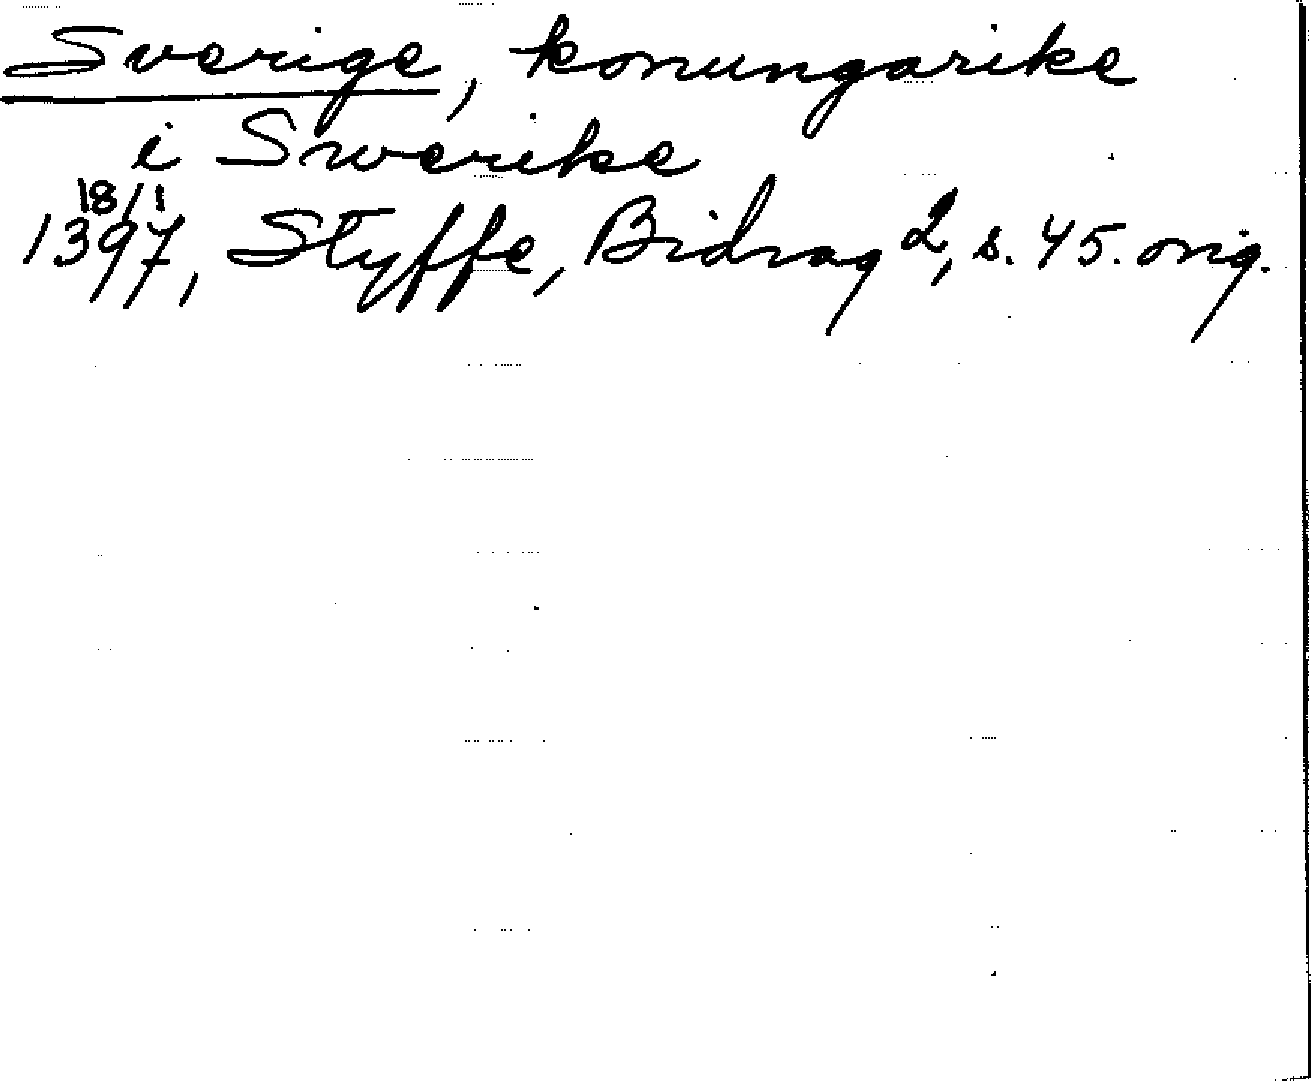 Sverige, konungarike
i Swerike
18/1
1397, Styffe, Bidrag 2, s. 45. orig.